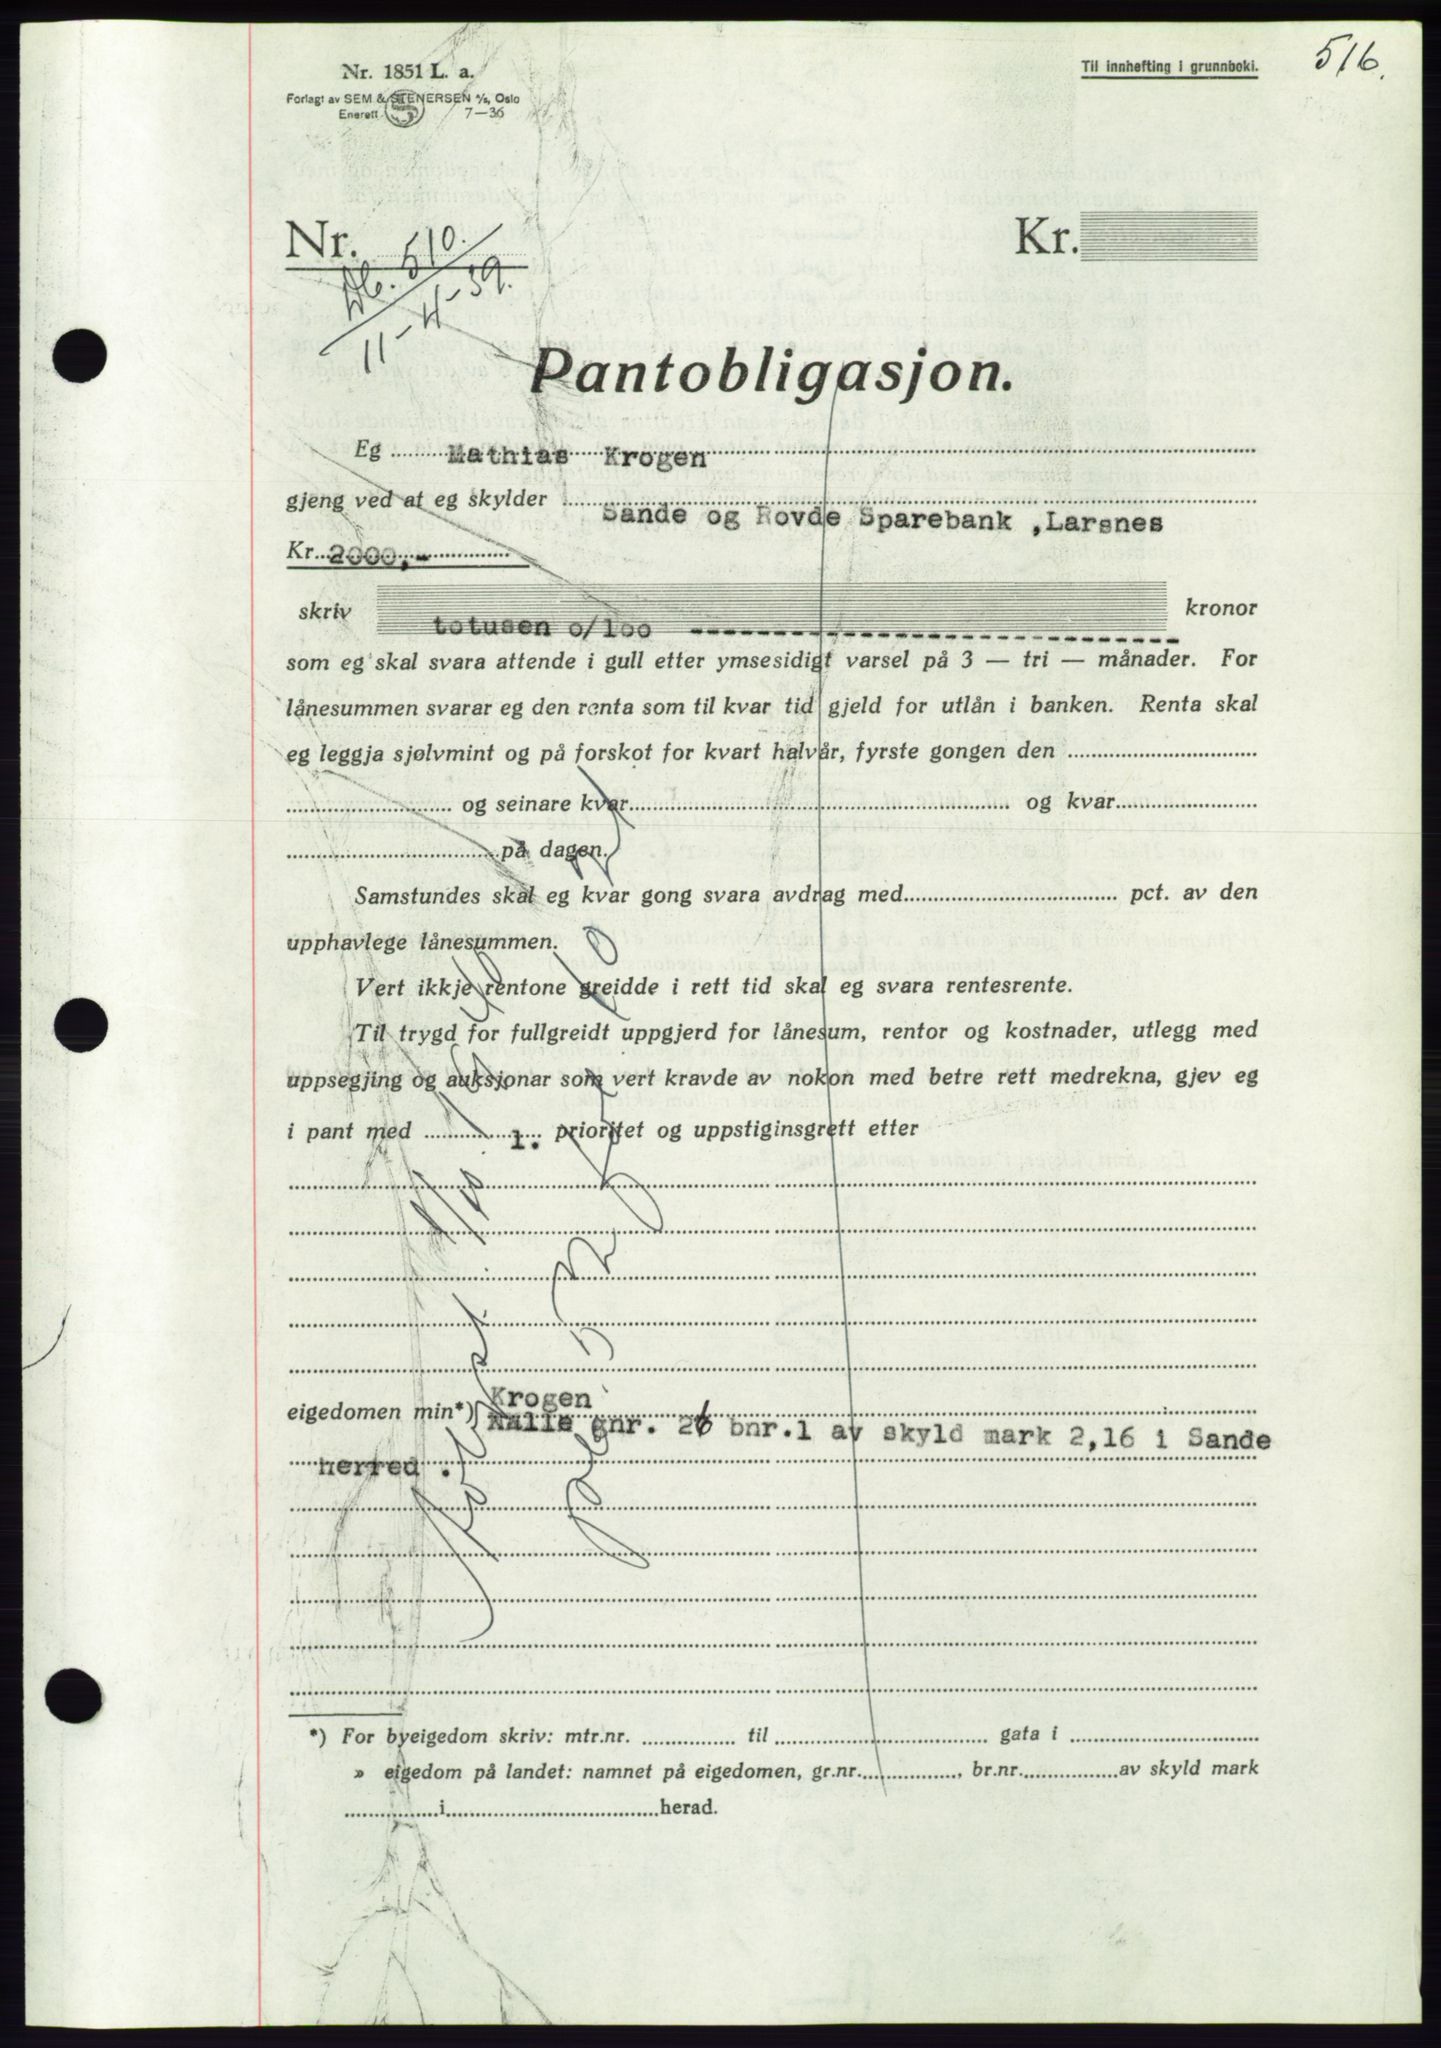 516.
Nr. 1851 L. a.
Til innhefting i grunnboki.
Forlagt av SEM & STENERSEN A/S, Oslo
Enerett 7—36
Nr.
Kr.
Db. 510.
11-4-39.
Pantobligasjon.
Eg Mathias Krogen
gjeng ved at eg skylder
Sande og Rovde Sparebank ,Larsnes
Kr. 2000,-
skriv totusen o/loo ---------------------------- kronor
som eg skal svara attende i gull etter ymsesidigt varsel på 3 — tri — månader. For
lånesummen svarar eg den renta som til kvar tid gjeld for utlån i banken. Renta skal
eg leggja sjølvmint og på forskot for kvart halvår, fyrste gongen den
og seinare kvar og kvar
på dagen.
Samstundes skal eg kvar gong svara avdrag med pct. av den
upphavlege lånesummen.
Vert ikkje rentone greidde i rett tid skal eg svara rentesrente.
Til trygd for fullgreidt uppgjerd for lånesum, rentor og kostnader, utlegg med
uppsegjing og auksjonar som vert kravde av nokon med betre rett medrekna, gjev eg
i pant med 1. prioritet og uppstiginsgrett etter
Krogen
eigedomen min*)
gnr. 26 bnr.1 av skyld mark 2,16 i Sande
herred .
*) For byeigedom skriv: mtr.nr. til gata i
» eigedom på landet: namnet på eigedomen, gr.nr. , br.nr. av skyld mark
i herad.